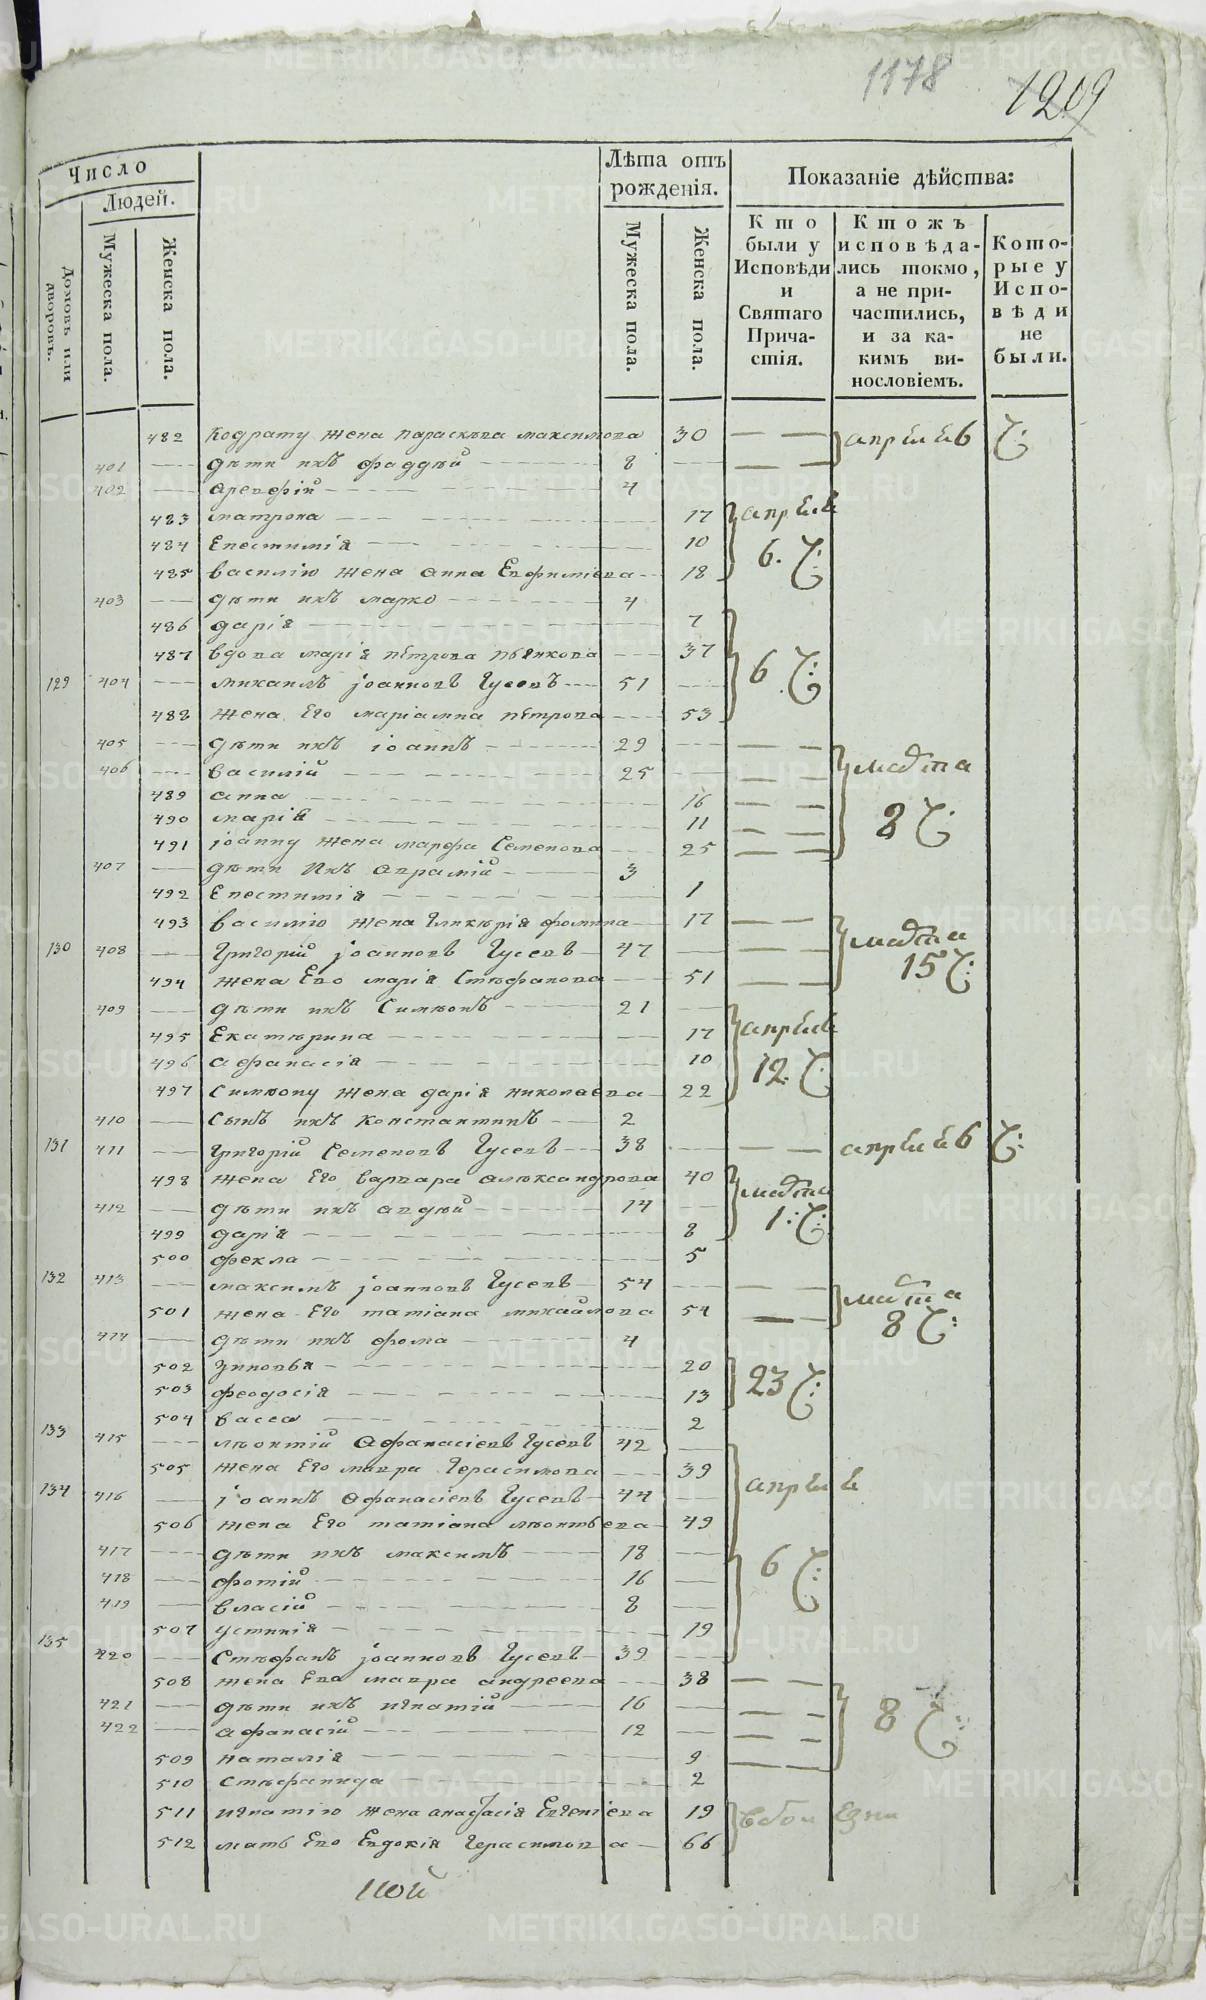 1178 1209
Число
Людей.
Домовъ или дворовъ.
Мужеска пола.
Женска пола.
Лѣта отъ рожденія.
Мужеска пола.
Женска пола.
Показаніе дѣйства:
Кто были у Исповѣди и Святаго Причастія.
Ктожъ исповѣдались токмо, а не причастились, и за какимъ винословіемъ.
Которые у Исповѣди не были.
482 Кодрату жена параскѣва максимова 30 апрѣля 6 Ч:
401 дѣти ихъ фаддѣй 8
402 арефій 4
483 матрона 17 апрѣля
484 Епестимія 10 6. Ч:
485 василію жена анна Евфиміева 18
403 дѣти ихъ марко 4
486 дарія 7
487 вдова марія пѣтрова пьянкова 37 6 Ч:
129 404 михаилъ іоанновъ Гусевъ 51
488 жена Его маріамна пѣтрова 53
405 дѣти ихъ іоаннъ 29
406 василій 25 марта
489 анна 16
490 марія 11 8 Ч:
491 іоанну жена марфа Семенова 25
407 дѣти ихъ аврамій 3
492 Епестимія 1
493 василію жена Гликѣрія фомина 17
130 408 Григорій іоанновъ Гусевъ 47 марта
494 жена Его марія Стѣфанова 51 15 Ч:
409 дѣти ихъ Симѣонъ 21
495 Екатѣрина 17 апрѣля
496 афанасія 10
497 Симѣону жена дарія николаева 22 12. Ч:
410 Сынъ ихъ константинъ 2
131 411 Григорій Семеновъ Гусевъ 38 апрѣля 6 Ч:
498 жена Его варвара алѣксандрова 40 марта
412 дѣти ихъ авдѣй 14 1: Ч:
499 дарія 8
500 фекла 5
132 413 максимъ іоанновъ Гусевъ 54 марта
501 жена Его татіана михайлова 54 8 Ч:
414 дѣти ихъ фома 4
502 Зиновья 20
503 феодосія 13 23 Ч:
504 васса 2
133 415 лѣонтій Афанасіевъ Гусевъ 42
505 жена Его мавра Герасимова 39
134 416 іоаннъ Афанасіевъ Гусевъ 44 апрѣля
506 жена Его татіана лѣонтьева 49
417 дѣти ихъ максимъ 18 6 Ч:
418 фотій 16
419 власій 8
507 устинія 19
135 420 Стѣфанъ іоанновъ Гусевъ 39
508 жена Его мавра андреева 38
421 дѣти ихъ игнатій 16 8 Ч:
422 афанасій 12
509 наталія 9
510 Стѣфанида 2
511 игнатію жена анастасія Евгеніева 19
512 мать Его Евдокія Герасимова 66